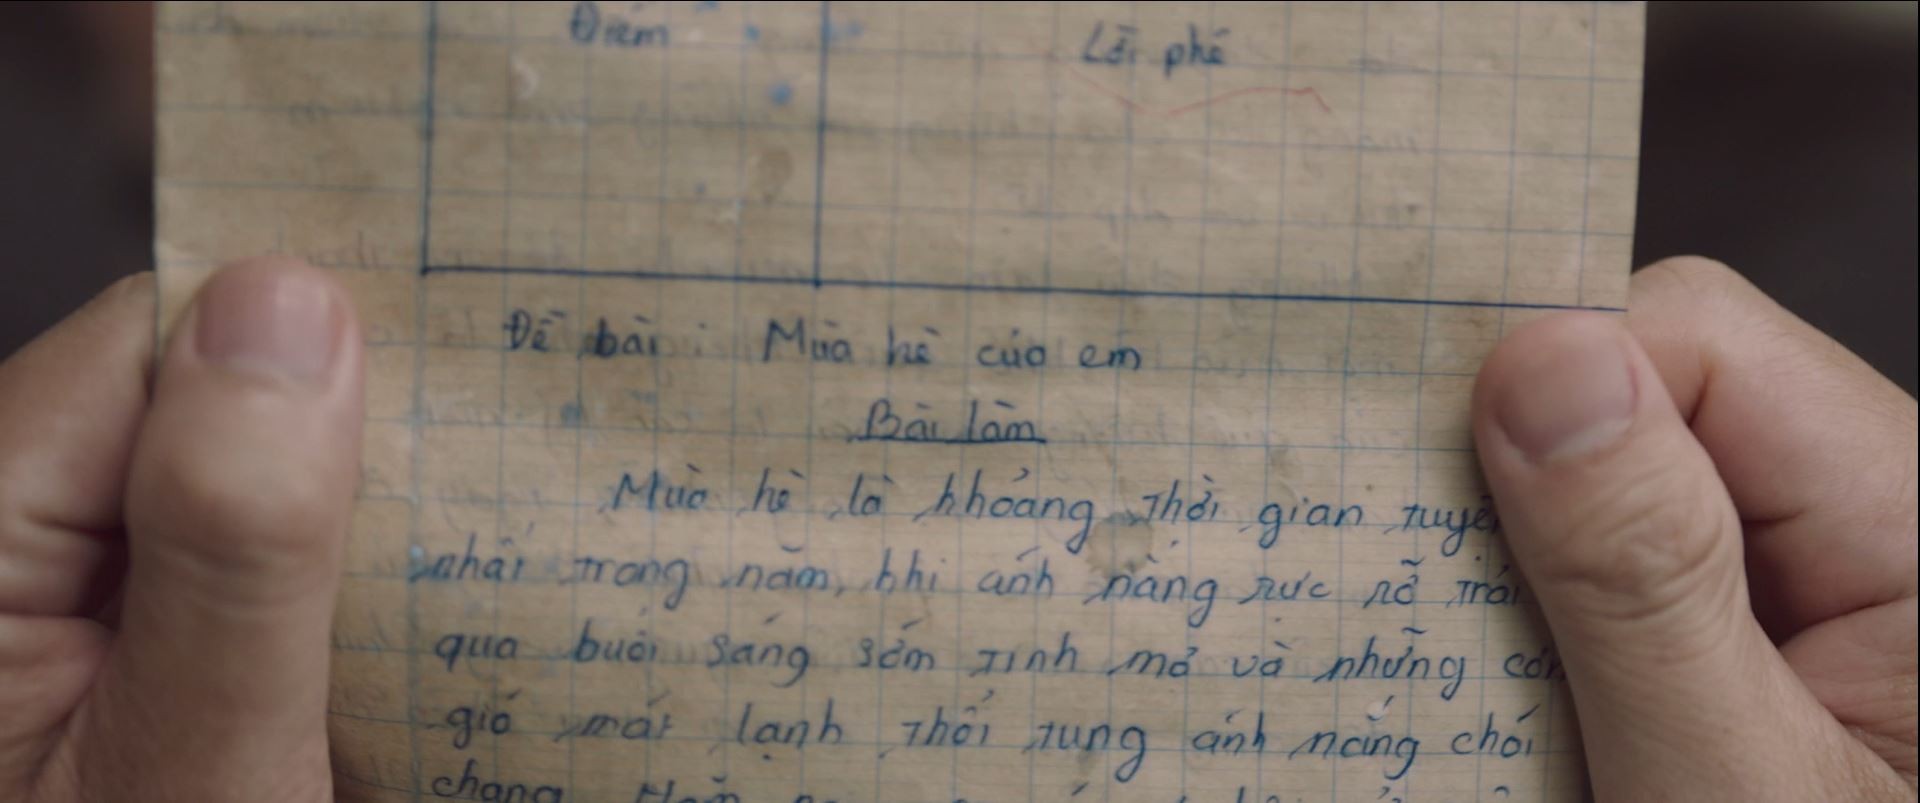 Điểm Lời phê
Đề bài: Mùa hè của em
Bài làm
Mùa hè là khoảng thời gian tuyệ
nhất trong năm, khi ánh nắng rực rỡ trải
qua buổi sáng sớm tinh mơ và những cơn
gió mát lạnh thổi tung ánh nắng chói
chang